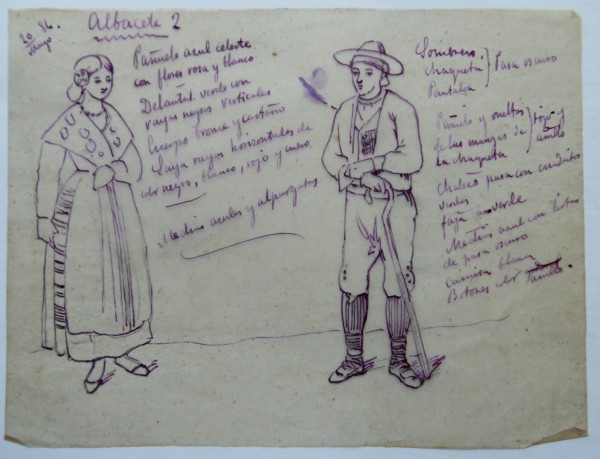 20
Mayo 86.
Albacete 2
Pañuelo azul celeste
con flores rosa y blanco.
Delantal verde con
rayas negras verticales
Cuerpo bronce y castaño
Saya rayas horizontales de
color negro, blanco, rojo y
Medias azules y alpargatas
Sombrero
Chaqueta } Pasa oscuro
Pantalon
Pañuelo y vueltos
de las mangas de } rojo y
la chaqueta
Chaleco pasa con cuadritos
verdes
faja verde
Medias azul con listas
de pasa oscuro
camisa blanca
Botones color